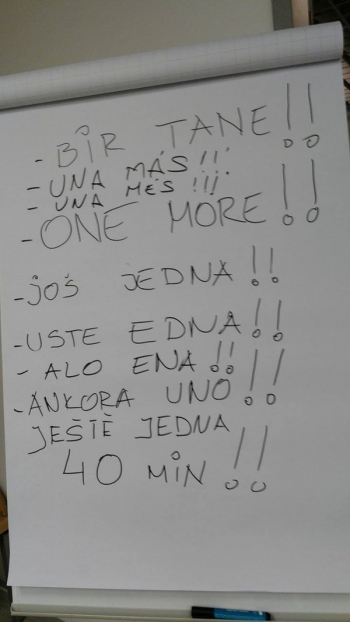 - BİR TANE!!
- UNA MÁS!!!
- UNA MÉS!!!
- ONE MORE!!
- JOŠ JEDNA!!
- USTE EDNA!!
- ALO ENA!!
- ANKORA UNO!!
JEŠTĚ JEDNA
40 MİN!!